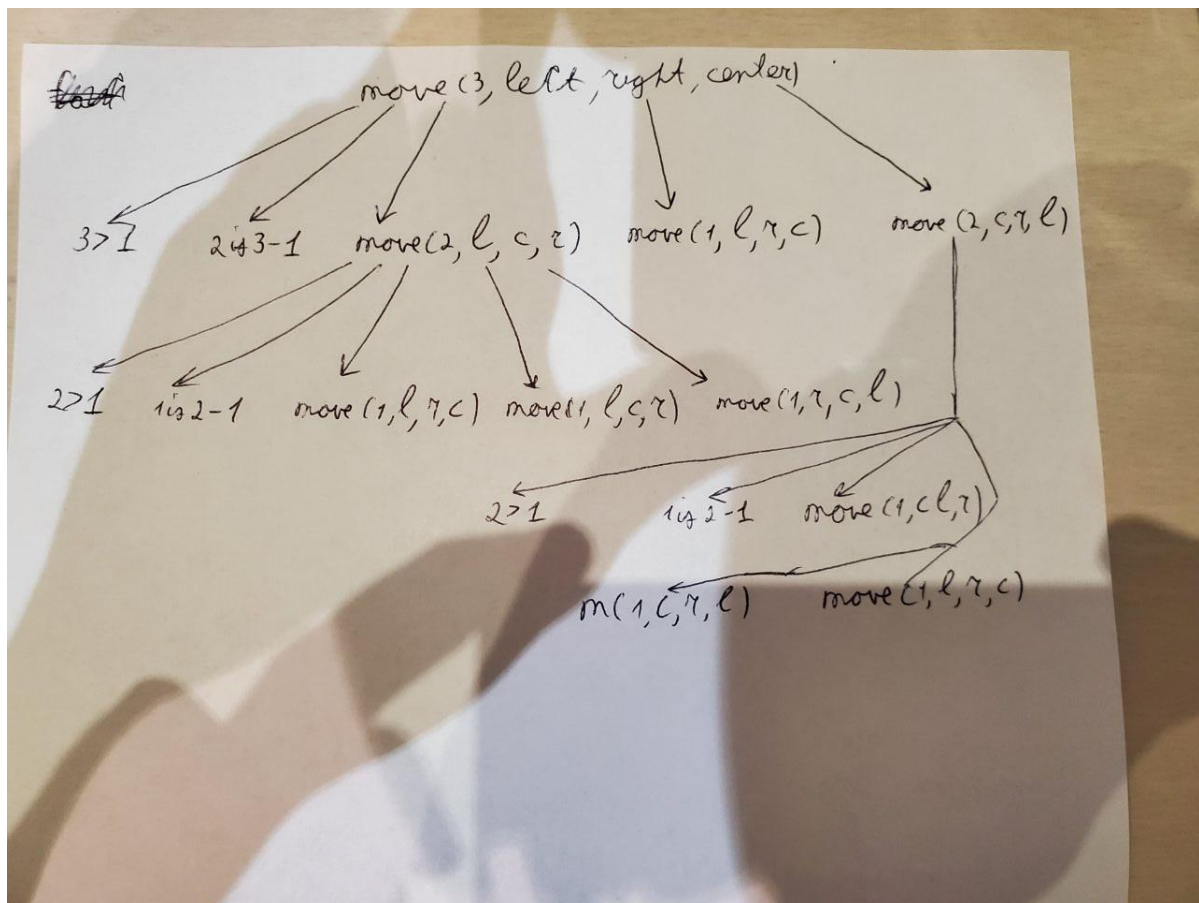 move(3, left, right, center)
3>1 2 is 3-1 move(2, l, c, r) move(1, l, r, c) move(2, c, r, l)
2>1 1 is 2-1 move(1, l, r, c) move(1, l, c, r) move(1, r, c, l)
2>1 1 is 2-1 move(1, c l, r)
m(1, c, r, l) move(1, l, r, c)